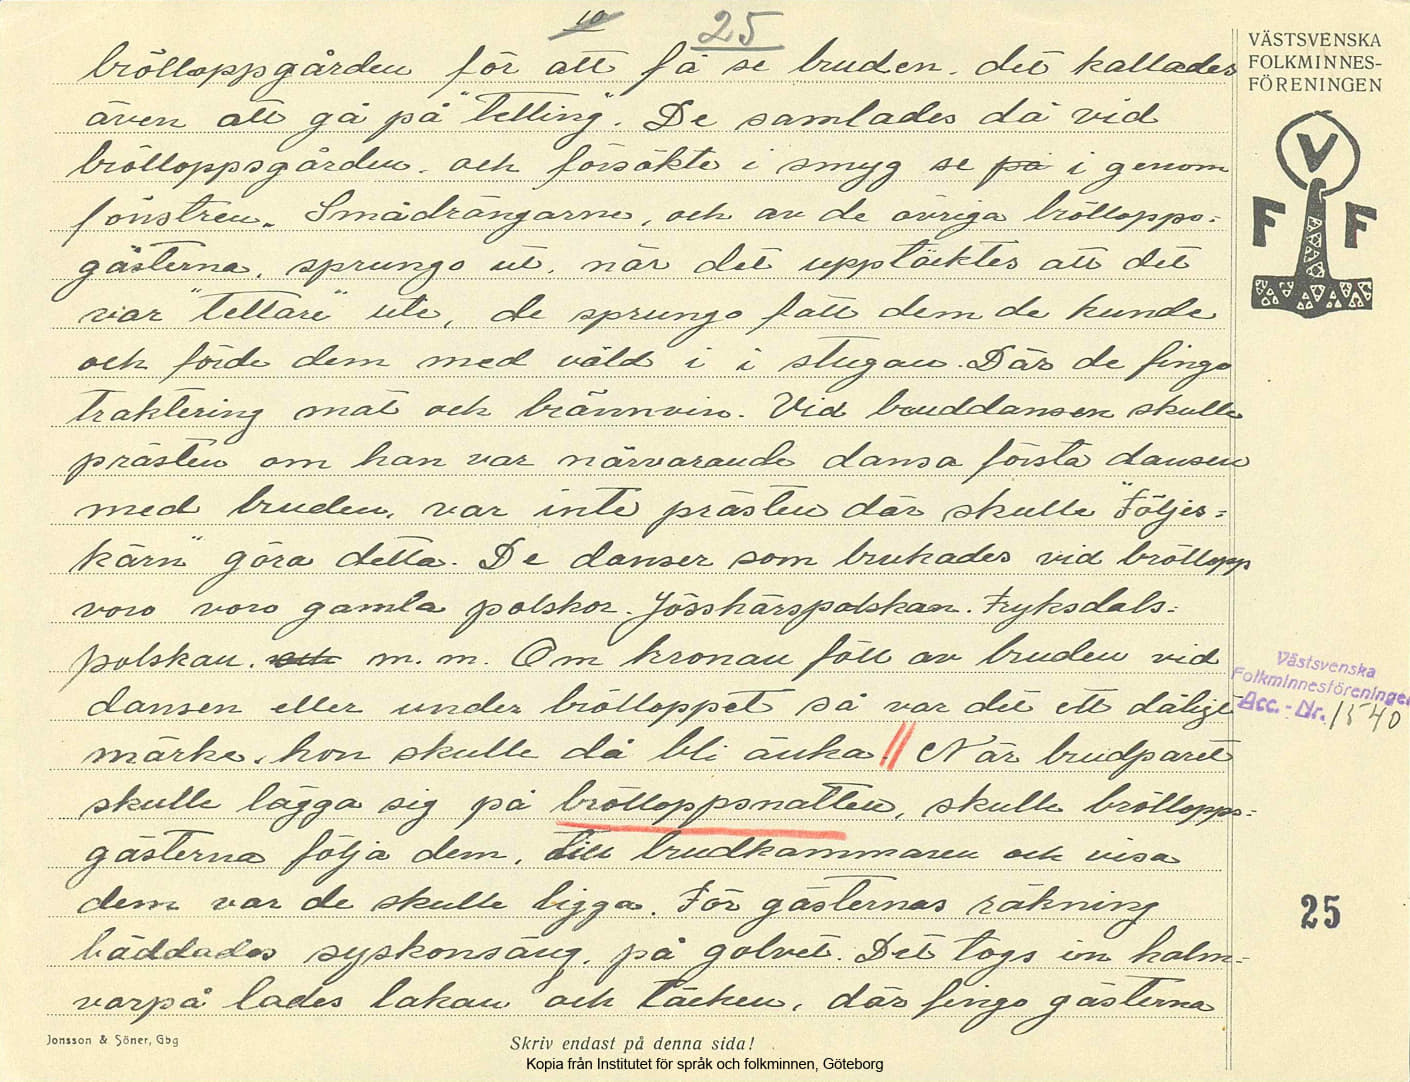 10 25
VÄSTSVENSKA
FOLKMINNES-
FÖRENINGEN
V
F F
brölloppgården för att få se bruden. det kallades
även att gå på "tetting". De samlades då vid
brölloppsgården. och försökte i smyg se på i genom
fönstren. Smådrängarne, och av de övriga bröllopps=
gästerna, sprungo ut, när det upptäcktes att det
var "tettare" ute, de sprungo fatt dem de kunde
och förde dem med våld i i stugan. Där de fingo
traktering mat och brännvin. Vid bruddansen skulle
prästen om han var närvarande dansa första dansen
med bruden, var inte prästen där skulle "Följes=
kärn" göra detta. De danser som brukades vid bröllopp
voro voro gamla polskor. Jösshärspolskan. Fryksdals=
polskan. och m. m. Om kronan föll av bruden vid
dansen eller under brölloppet så var det ett dåligt
märke, hon skulle då bli änka // När brudparet
skulle lägga sig på brölloppsnatten, skulle bröllopps=
gästerna följa dem, till brudkammaren och visa
dem var de skulle ligga. För gästernas räkning
bäddades syskonsäng, på golvet. Det togs in halm=
varpå lades lakan och täcken, där fingo gästerna
Västsvenska
Folkminnesföreningen
Acc.-Nr. 1540
25
Jonsson & Söner, Gbg
Skriv endast på denna sida!
Kopia från Institutet för språk och folkminnen, Göteborg